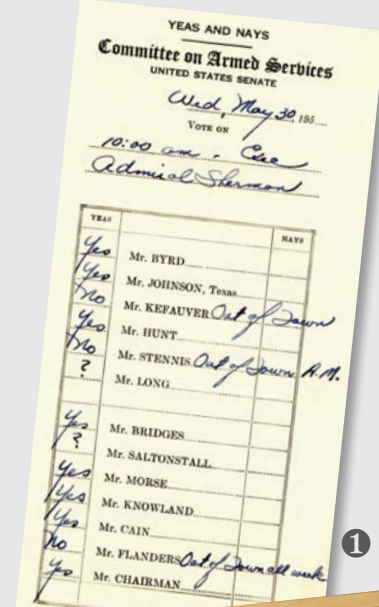 YEAS AND NAYS
Committee on Armed Services
UNITED STATES SENATE
Wed, May 30, 195
VOTE ON
10:00 am. Exec
Admiral Sherman
YEAS NAYS
Yes Mr. BYRD
Yes Mr. JOHNSON, Texas
No Mr. KEFAUVER Out of Town
Yes Mr. HUNT
No Mr. STENNIS Out of Town A.M.
? Mr. LONG
Yes Mr. BRIDGES
? Mr. SALTONSTALL
Yes Mr. MORSE
Yes Mr. KNOWLAND
Yes Mr. CAIN
No Mr. FLANDERS Out of Town all week
Yes Mr. CHAIRMAN
1